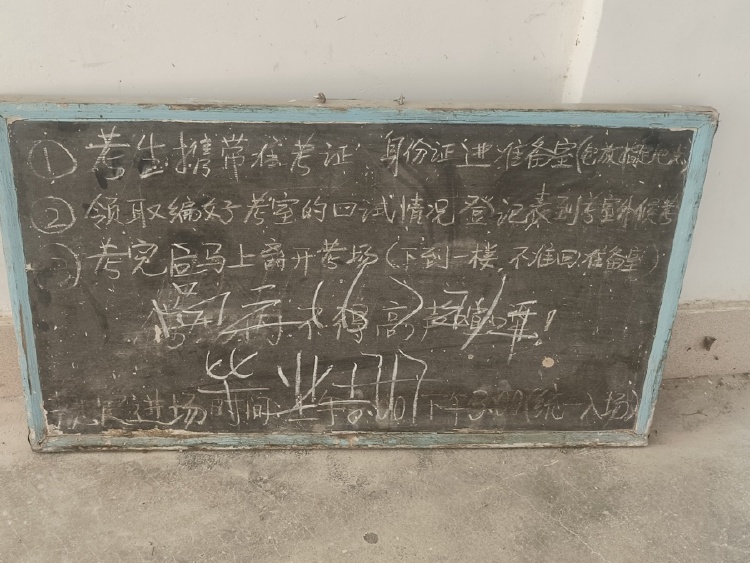 ① 考生携带准考证 身份证进准备室(包放指定地点)
② 领取编好考室的口试情况登记表到考室外候考
③ 考完后马上离开考场(下到一楼,不准回准备室)
不得高声喧哗!
毕业册
进场时间:上午8:00 下午3:00(统一入场)